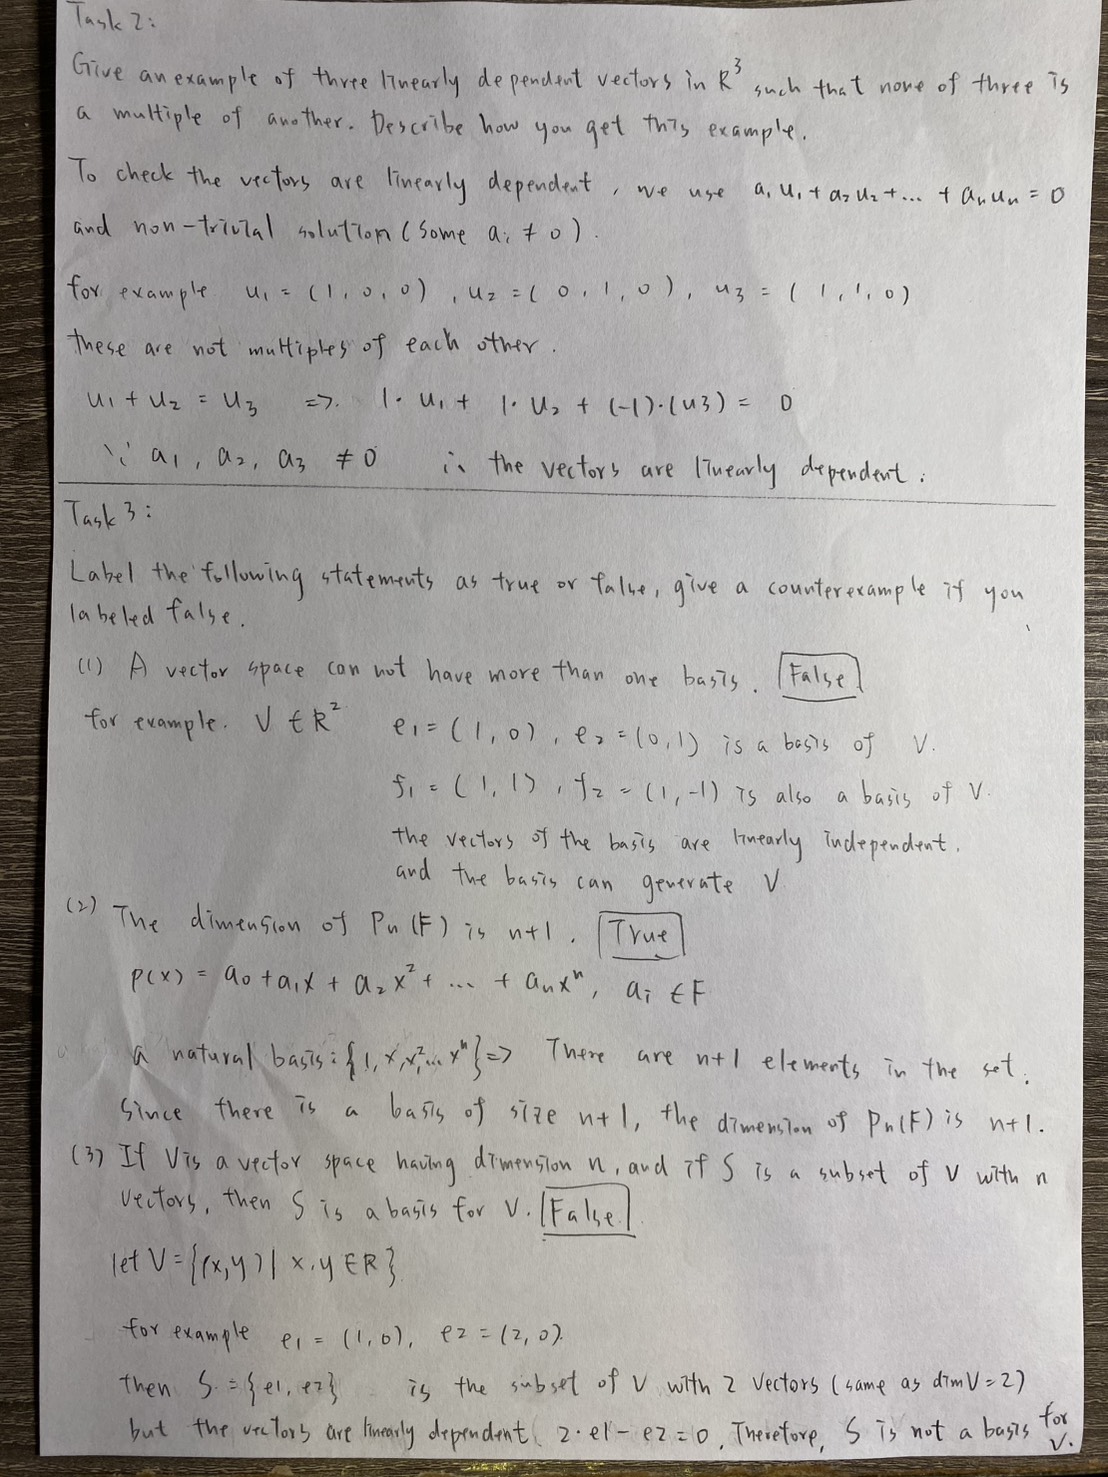 Task 2:
Give an example of three linearly dependent vectors in R³ such that none of three is
a multiple of another. Describe how you get this example.
To check the vectors are linearly dependent, we use a₁u₁+a₂u₂+... +aₙuₙ=0
and non-trivial solution (some aᵢ ≠ 0).
for example u₁ = (1,0,0), u₂ = (0,1,0), u₃ = (1,1,0)
these are not multiples of each other.
u₁+u₂ = u₃ => 1·u₁+ 1·u₂ + (-1)·(u3) = 0
∵ a₁, a₂, a₃ ≠0 ∴ the vectors are linearly dependent.
Task 3:
Label the following statements as true or false, give a counterexample if you
labeled false.
(1) A vector space can not have more than one basis. False
for example. V ∈ R² e₁=(1,0), e₂=(0,1) is a basis of V.
f₁ = (1,1), f₂ = (1,-1) is also a basis of V.
the vectors of the basis are linearly independent.
and the basis can generate V
(2) The dimension of Pn(F) is n+1. True
p(x) = a₀+a₁x+a₂x²+ ... + aₙxⁿ, aᵢ ∈ F
a natural basis: {1,x,x²,...xⁿ} => There are n+1 elements in the set.
Since there is a basis of size n+1, the dimension of Pn(F) is n+1.
(3) If V is a vector space having dimension n, and if S is a subset of V with n
vectors, then S is a basis for V. False
let V={(x,y)| x,y∈R}
for example e₁ = (1,0), e2 = (2,0).
then S = {e1, e2} is the subset of V with 2 vectors (same as dimV=2)
but the vectors are linearly dependent 2·e1-e2=0. Therefore, S is not a basis for
V.